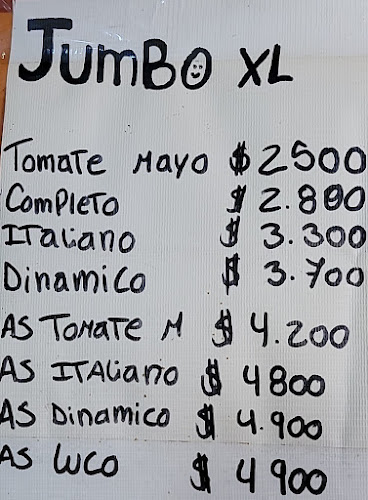 JUMBO XL
Tomate Mayo $ 2500
Completo $ 2.800
ITaliano $ 3.300
Dinamico $ 3.700
AS TOMATE M $ 4.200
AS ITAliano $ 4800
AS Dinamico $ 4.900
AS LUCO $ 4 900